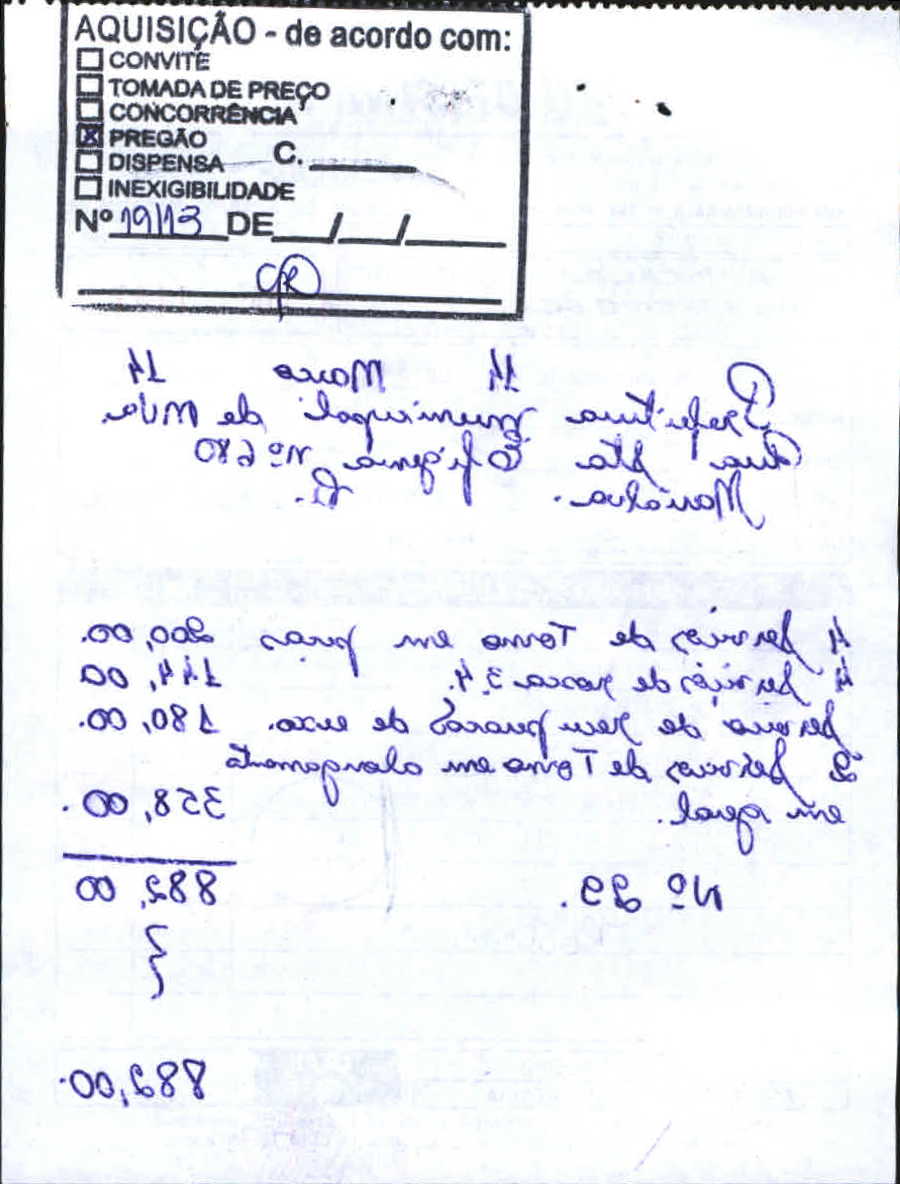 AQUISIÇÃO - de acordo com:
CONVITE
TOMADA DE PREÇO
CONCORRÊNCIA
PREGÃO
DISPENSA C.
INEXIGIBILIDADE
Nº 19/13 DE / /
14 Março 14
Prefeitura municipal de Mva.
Rua Sta Efigenia nº 680
Marialva. Pr.
4 serviços de Torno em peças 200,00.
4 serviços de rosca 3,4. 144,00
serviço de recuperação de eixo. 180,00.
2 serviços de Torno em alongamento
em geral. 358,00.
Nº 29. 882,00
882,00.